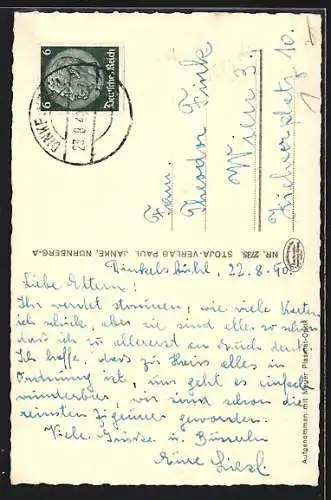 6 Deutsches Reich 6
DINKE
23.8.40
Fam.
Theodor Fink
Wien 3.
Ziehrerplatz 10.
NR. 2735 STOJA-VERLAG PAUL JANKE, NÜRNBERG-A
Aufgenommen mit Meyer Plasmat-Optik
Dinkelsbühl, 22.8.40
Liebe Eltern!
Ihr werdet staunen, wie viele Karten
ich schicke, aber sie sind alle so schön
dass ich zu allererst an Euch denk.
Ich hoffe, dass zu Haus alles in
Ordnung ist, uns geht es einfach
wunderbar, wir sind schon die
reinsten Zigeuner geworden.
Viele Grüsse u. Busserln
Eure Liesl